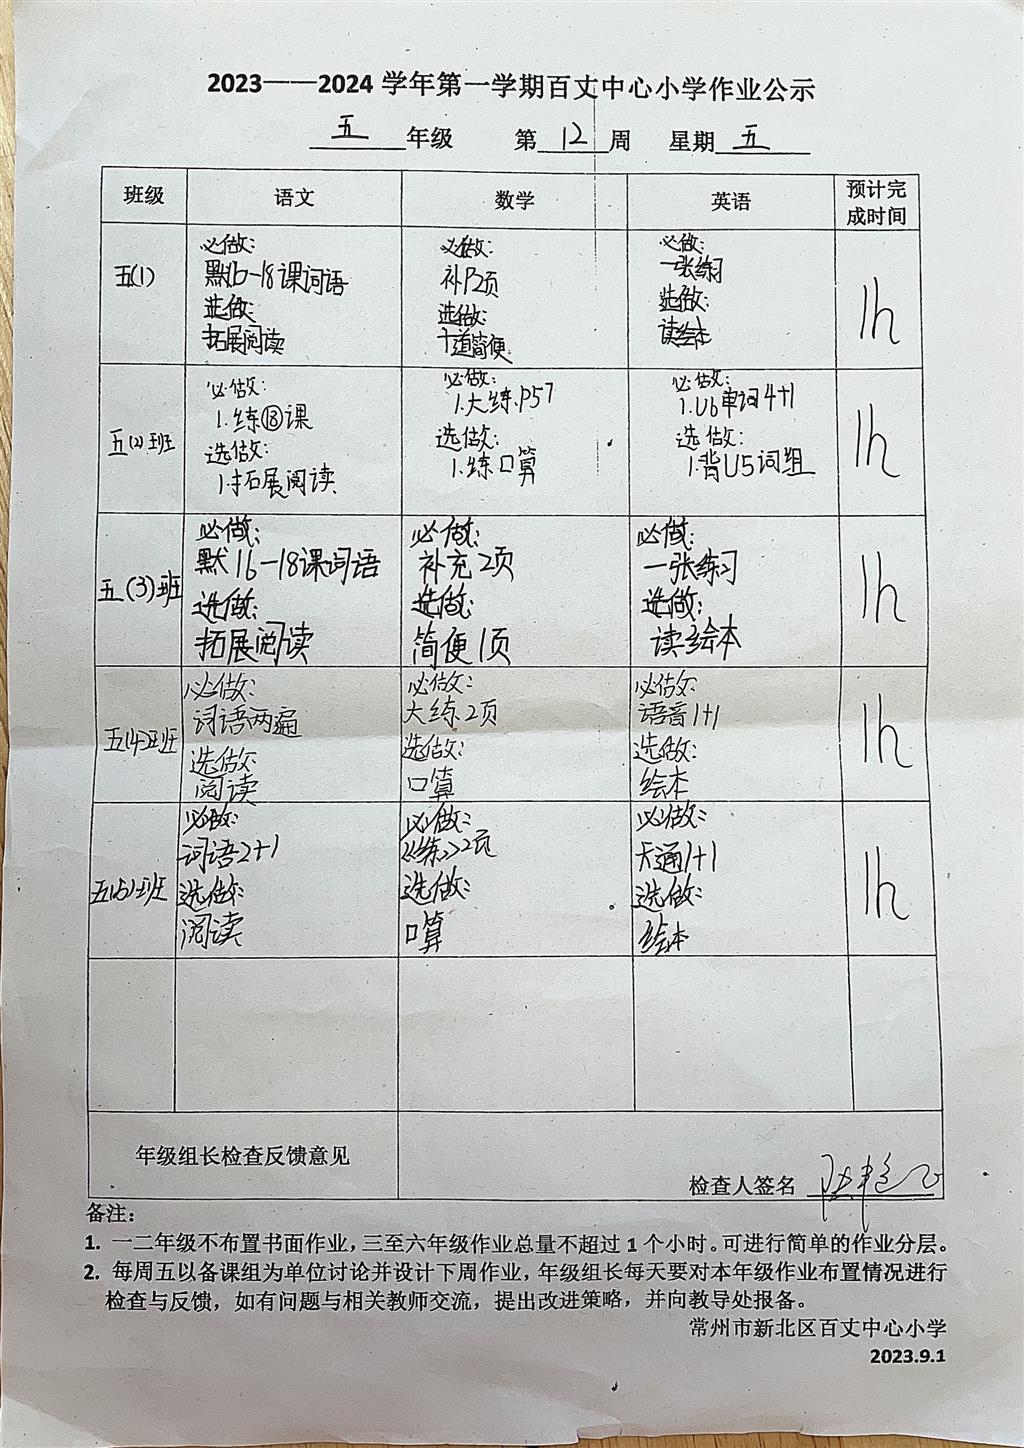 2023——2024 学年第一学期百丈中心小学作业公示
五 年级 第 12 周 星期 五
班级 语文 数学 英语 预计完成时间
五(1)
必做:
默16-18课词语
选做:
拓展阅读
必做:
补P2页
选做:
十道简便
必做:
一张练习
选做:
读绘本
1h
五(2)班
必做:
1.练⑱课
选做:
1.拓展阅读
必做:
1.大练.P57
选做:
1.练口算
必做:
1.U6单词4+1
选做:
1.背U5词组
1h
五(3)班
必做:
默16-18课词语
选做:
拓展阅读
必做:
补充2页
选做:
简便1页
必做:
一张练习
选做:
读绘本
1h
五(4)班
必做:
词语两遍
选做:
阅读
必做:
大练2页
选做:
口算
必做:
语音1+1
选做:
绘本
1h
五(5)班
必做:
词语2+1
选做:
阅读
必做:
《练》2页
选做:
口算
必做:
天通1+1
选做:
绘本
1h
年级组长检查反馈意见
检查人签名
备注:
1. 一二年级不布置书面作业，三至六年级作业总量不超过 1 个小时。可进行简单的作业分层。
2. 每周五以备课组为单位讨论并设计下周作业，年级组长每天要对本年级作业布置情况进行
检查与反馈，如有问题与相关教师交流，提出改进策略，并向教导处报备。
常州市新北区百丈中心小学
2023.9.1